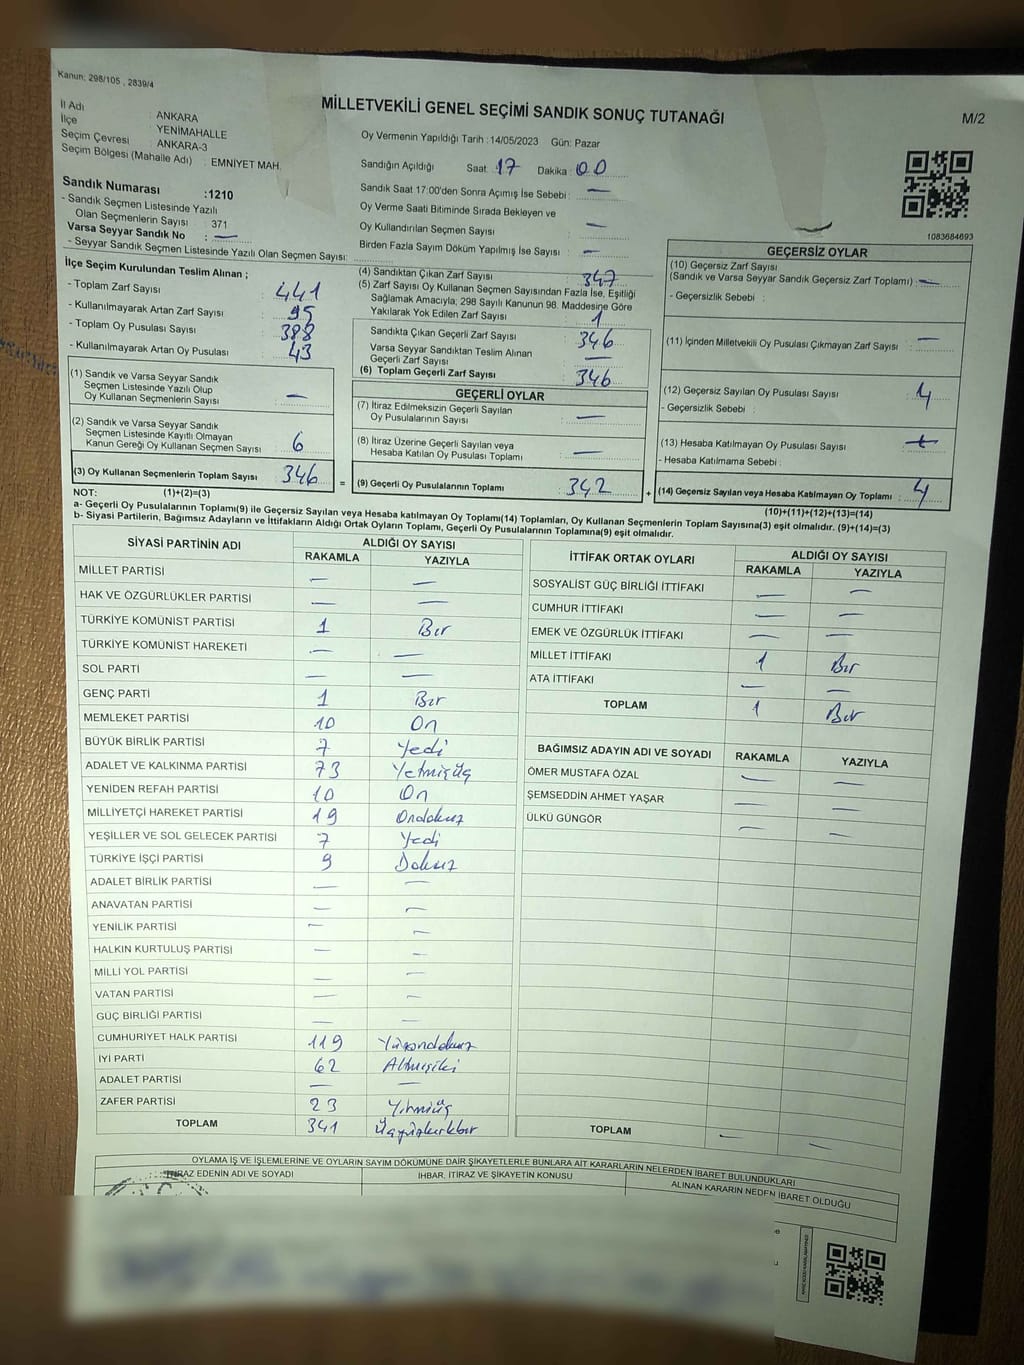 Kanun: 298/105 , 2839/4
MİLLETVEKİLİ GENEL SEÇİMİ SANDIK SONUÇ TUTANAĞI
M/2
İl Adı : ANKARA
İlçe YENİMAHALLE
Seçim Çevresi ANKARA-3
Seçim Bölgesi (Mahalle Adı) : EMNİYET MAH.
Oy Vermenin Yapıldığı Tarih :14/05/2023 Gün: Pazar
Sandığın Açıldığı Saat :17 Dakika : 00
Sandık Saat 17:00'den Sonra Açımış İse Sebebi : —
Oy Verme Saati Bitiminde Sırada Bekleyen ve
Oy Kullandırılan Seçmen Sayısı : —
Birden Fazla Sayım Döküm Yapılmış İse Sayısı : —
1083684693
Sandık Numarası :1210
- Sandık Seçmen Listesinde Yazılı
Olan Seçmenlerin Sayısı : 371
Varsa Seyyar Sandık No : —
- Seyyar Sandık Seçmen Listesinde Yazılı Olan Seçmen Sayısı:
İlçe Seçim Kurulundan Teslim Alınan ;
- Toplam Zarf Sayısı : 441
- Kullanılmayarak Artan Zarf Sayısı : 95
- Toplam Oy Pusulası Sayısı : 388
- Kullanılmayarak Artan Oy Pusulası : 43
(1) Sandık ve Varsa Seyyar Sandık
Seçmen Listesinde Yazılı Olup
Oy Kullanan Seçmenlerin Sayısı : —
(2) Sandık ve Varsa Seyyar Sandık
Seçmen Listesinde Kayıtlı Olmayan
Kanun Gereği Oy Kullanan Seçmen Sayısı : 6
(3) Oy Kullanan Seçmenlerin Toplam Sayısı : 346
(4) Sandıktan Çıkan Zarf Sayısı : 347
(5) Zarf Sayısı Oy Kullanan Seçmen Sayısından Fazla İse, Eşitliği
Sağlamak Amacıyla; 298 Sayılı Kanunun 98. Maddesine Göre
Yakılarak Yok Edilen Zarf Sayısı : 1
Sandıkta Çıkan Geçerli Zarf Sayısı : 346
Varsa Seyyar Sandıktan Teslim Alınan
Geçerli Zarf Sayısı : —
(6) Toplam Geçerli Zarf Sayısı : 346
GEÇERLİ OYLAR
(7) İtiraz Edilmeksizin Geçerli Sayılan
Oy Pusulalarının Sayısı : —
(8) İtiraz Üzerine Geçerli Sayılan veya
Hesaba Katılan Oy Pusulası Toplamı : —
= (9) Geçerli Oy Pusulalarının Toplamı : 342
GEÇERSİZ OYLAR
(10) Geçersiz Zarf Sayısı
(Sandık ve Varsa Seyyar Sandık Geçersiz Zarf Toplamı) : —
- Geçersizlik Sebebi :
(11) İçinden Milletvekili Oy Pusulası Çıkmayan Zarf Sayısı : —
(12) Geçersiz Sayılan Oy Pusulası Sayısı : 4
- Geçersizlik Sebebi :
(13) Hesaba Katılmayan Oy Pusulası Sayısı :
- Hesaba Katılmama Sebebi :
+ (14) Geçersiz Sayılan veya Hesaba Katılmayan Oy Toplamı : 4
NOT: (1)+(2)=(3)
(10)+(11)+(12)+(13)=(14)
a- Geçerli Oy Pusulalarının Toplamı(9) ile Geçersiz Sayılan veya Hesaba katılmayan Oy Toplamı(14) Toplamları, Oy Kullanan Seçmenlerin Toplam Sayısına(3) eşit olmalıdır. (9)+(14)=(3)
b- Siyasi Partilerin, Bağımsız Adayların ve İttifakların Aldığı Ortak Oyların Toplamı, Geçerli Oy Pusulalarının Toplamına(9) eşit olmalıdır.
SİYASİ PARTİNİN ADI ALDIĞI OY SAYISI
RAKAMLA YAZIYLA
MİLLET PARTİSİ — —
HAK VE ÖZGÜRLÜKLER PARTİSİ — —
TÜRKİYE KOMÜNİST PARTİSİ 1 Bir
TÜRKİYE KOMÜNİST HAREKETİ — —
SOL PARTİ — —
GENÇ PARTİ 1 Bir
MEMLEKET PARTİSİ 10 On
BÜYÜK BİRLİK PARTİSİ 7 Yedi
ADALET VE KALKINMA PARTİSİ 73 Yetmişüç
YENİDEN REFAH PARTİSİ 10 On
MİLLİYETÇİ HAREKET PARTİSİ 19 Ondokuz
YEŞİLLER VE SOL GELECEK PARTİSİ 7 Yedi
TÜRKİYE İŞÇİ PARTİSİ 9 Dokuz
ADALET BİRLİK PARTİSİ — —
ANAVATAN PARTİSİ — —
YENİLİK PARTİSİ — —
HALKIN KURTULUŞ PARTİSİ — —
MİLLİ YOL PARTİSİ — —
VATAN PARTİSİ — —
GÜÇ BİRLİĞİ PARTİSİ — —
CUMHURİYET HALK PARTİSİ 119 Yüzondokuz
İYİ PARTİ 62 Altmışiki
ADALET PARTİSİ — —
ZAFER PARTİSİ 23 Yirmiüç
TOPLAM 341 Üçyüzkırkbir
İTTİFAK ORTAK OYLARI ALDIĞI OY SAYISI
RAKAMLA YAZIYLA
SOSYALİST GÜÇ BİRLİĞİ İTTİFAKI — —
CUMHUR İTTİFAKI — —
EMEK VE ÖZGÜRLÜK İTTİFAKI — —
MİLLET İTTİFAKI 1 Bir
ATA İTTİFAKI — —
TOPLAM 1 Bir
BAĞIMSIZ ADAYIN ADI VE SOYADI RAKAMLA YAZIYLA
ÖMER MUSTAFA ÖZAL — —
ŞEMSEDDİN AHMET YAŞAR — —
ÜLKÜ GÜNGÖR — —
TOPLAM — —
OYLAMA İŞ VE İŞLEMLERİNE VE OYLARIN SAYIM DÖKÜMÜNE DAİR ŞİKAYETLERLE BUNLARA AİT KARARLARIN NELERDEN İBARET BULUNDUKLARI
İTİRAZ EDENİN ADI VE SOYADI İHBAR, İTİRAZ VE ŞİKAYETİN KONUSU ALINAN KARARIN NEDEN İBARET OLDUĞU